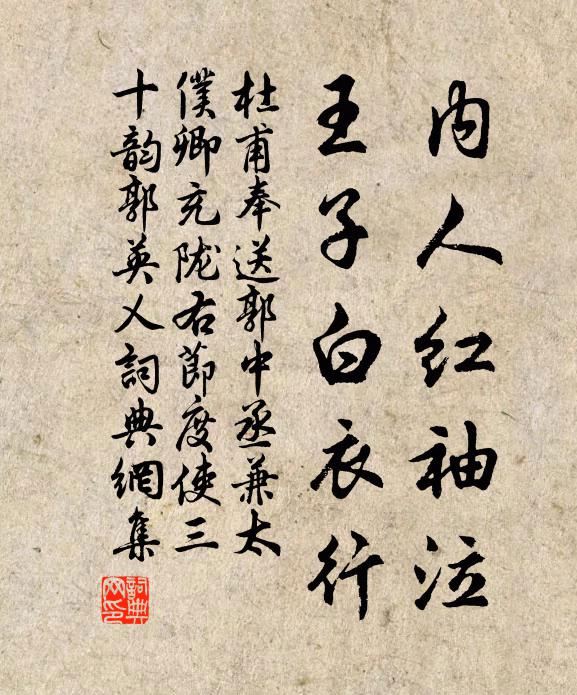 内人红袖泣
王子白衣行
杜甫奉送郭中丞兼太
僕卿充陇右節度使三
十韵郭英乂詞典網集
詞典
网印